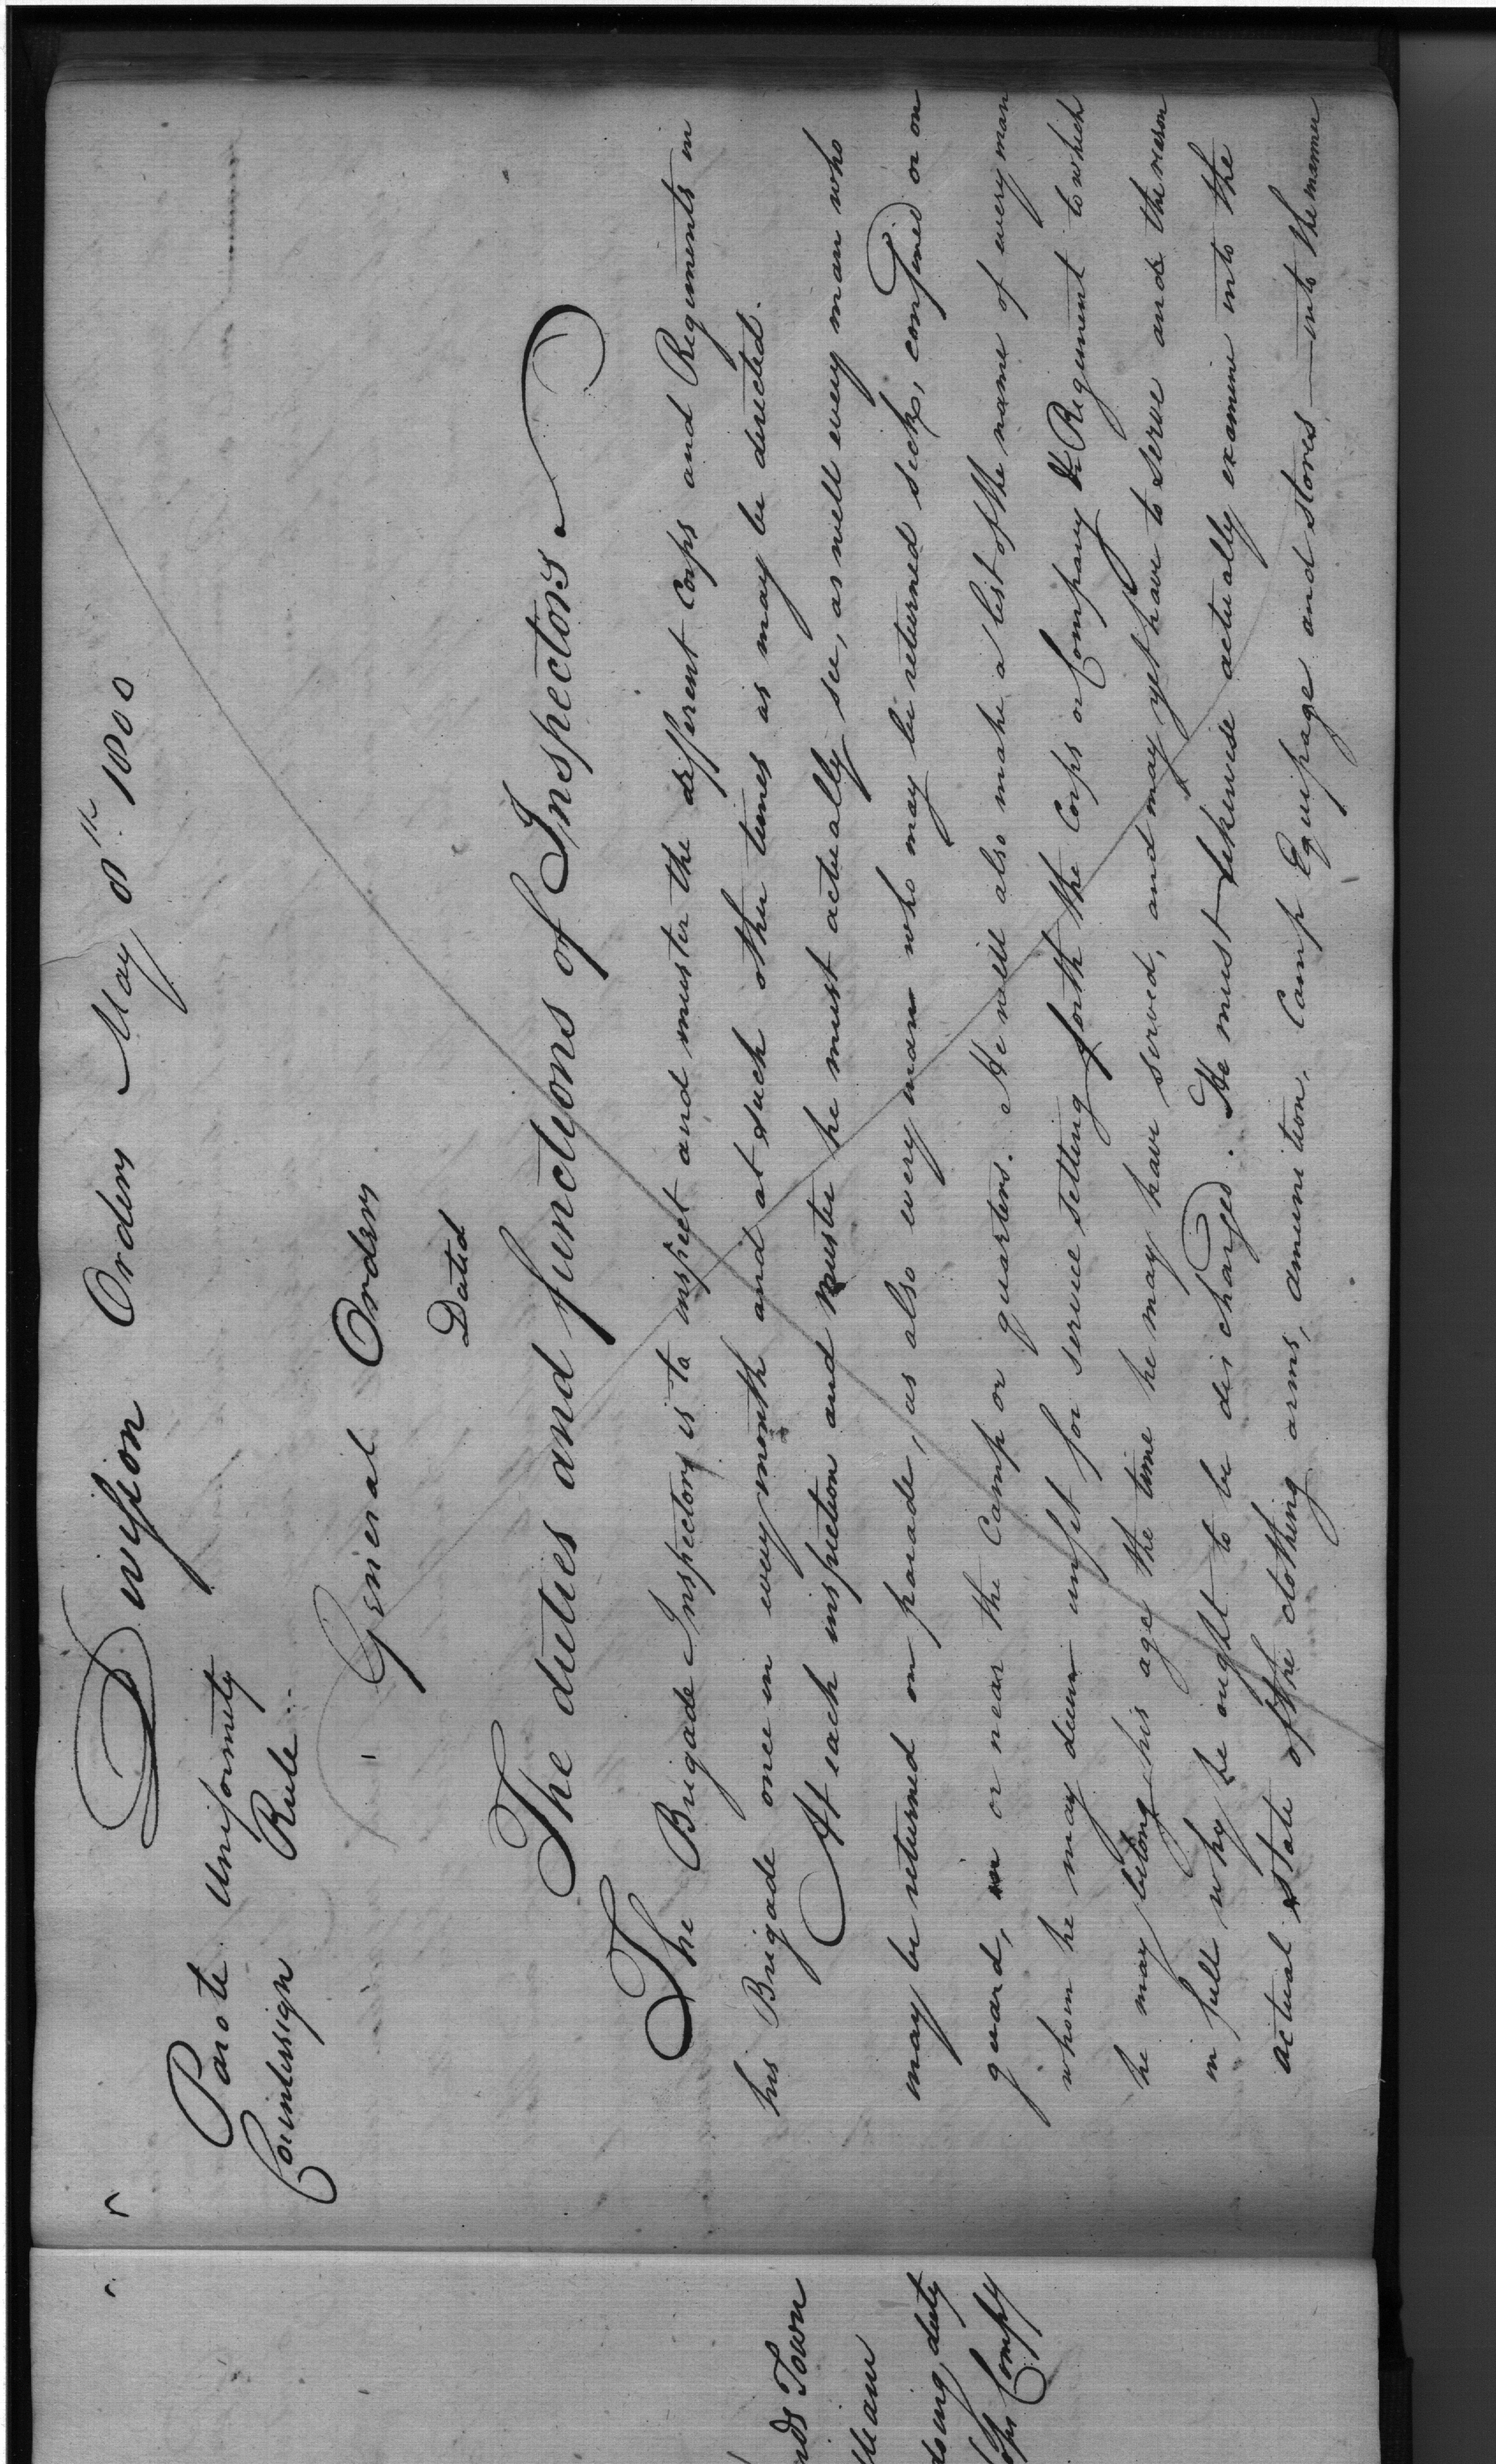 Division Orders May 8th 1800
Parote Uniformity
Countersign Rule
General Orders
Dated
The duties and functions of Inspectors
The Brigade Inspectory is to inspect and muster the different Corps and Regiments in
his Brigade once in every month and at such other times as may be directed.
At each inspection and muster he must actually see, as well every man who
may be returned on parade, as also every man who may be returned sick, confined or on
guard, in or near the Camp or quarters. He will also make a list of the name of every man
whom he may deem unfit for service setting forth the Corps or Company & Regiment to which
he may belong his age the time he may have served, and may yet have to serve and the reason
in full why he ought to be discharged. He must likewise actually examine into the
actual state of the clothing arms, amunition, Camp Equipage and stores — into the manner
nds Town
doing duty
Compy